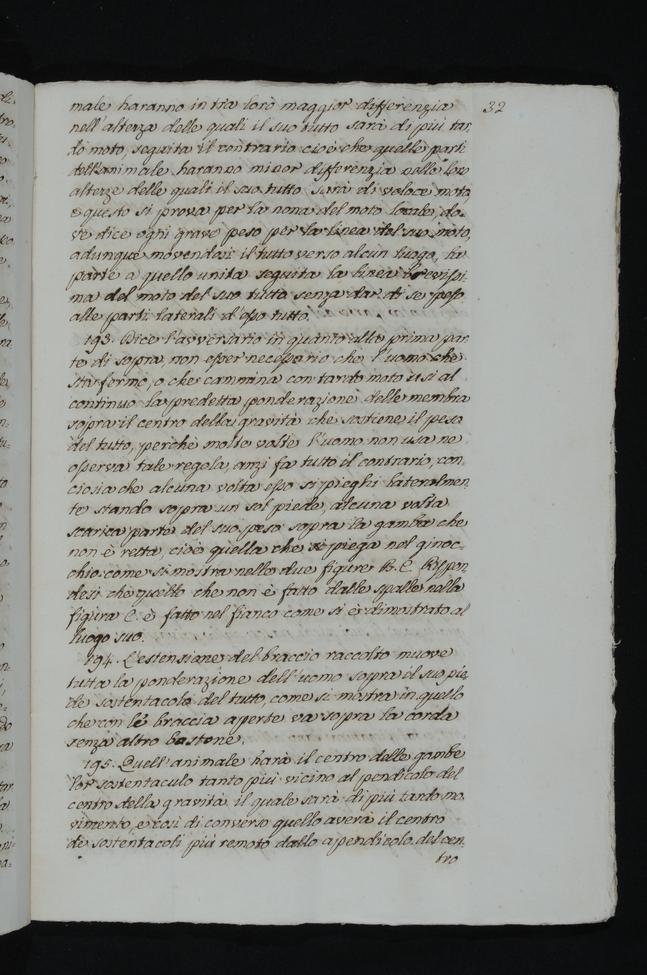 32
male haranno in trà lorò maggior differenzia
nell'altezza delle quali il suo tutto sarà di più tar,
do moto, seguita il contrario cioè che quelle parti
dell'animale haranno minor differenzia nelle lor
altezze delle quali il suo tutto sarà di veloce moto,
e questo si prova per la nona del moto locale, do,
ve dice ogni grave pesa per la linea del suo moto,
adunque movendosi il tutto verso alcun luogo, la
parte a quello unita seguita la linea brevissi,
ma del moto del suo tutto senza dar di se peso
alle parti laterali d'esso tutto.
193. Dice l'avversario in quanto alla prima par
te di sopra, non esser necessario che l'uomo che
sta fermo, o che cammina con tardo moto usi al
continuo la predetta ponderazione delle membra
sopra il centro della gravità che sostiene il peso
del tutto, perchè molte volte l'uomo non usa ne
osserva tale regola, anzi fa tutto il contrario, con,
ciosia che alcuna volta esso si pieghi lateralmen,
te stando sopra un sol piede, alcuna volta
scarica parte del suo peso sopra la gamba che
non è retta, cioè quella che si piega nel ginoc,
chio come si mostra nelle due figure B. C. Rispon
desi che quello che non è fatto dalle spalle nella
figura C. è fatto nel fianco come si è dimostrato al
luogo suo.
194. L'estensione del braccio raccolto muove
tutta la ponderazione dell'uomo sopra il suo pie,
de sostentacolo del tutto, come si mostra in quello
che con le braccia aperte va sopra la corda
senza altro bastone.
195. Quell'animale harà il centro delle gambe
lor sostentaculo tanto più vicino al pendicolo del
centro della gravità, il quale sarà di più tardo mo,
vimento, e così di converso quello averà il centro
de sostentacoli più remoto dallo apendicolo del cen,
tro